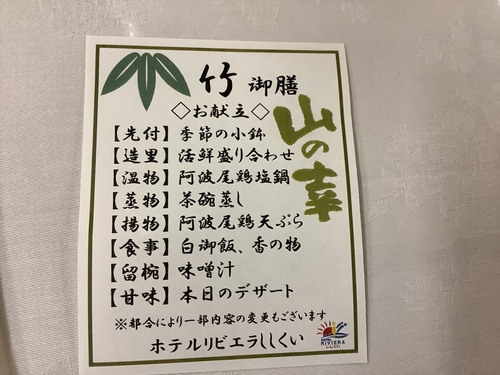 竹 御膳
◇お献立◇
山の幸
【先付】季節の小鉢
【造里】活鮮盛り合わせ
【温物】阿波尾鶏塩鍋
【蒸物】茶碗蒸し
【揚物】阿波尾鶏天ぷら
【食事】白御飯、香の物
【留椀】味噌汁
【甘味】本日のデザート
※都合により一部内容の変更もございます
ホテルリビエラししくい
HOTEL
RIVIERA
ししくい